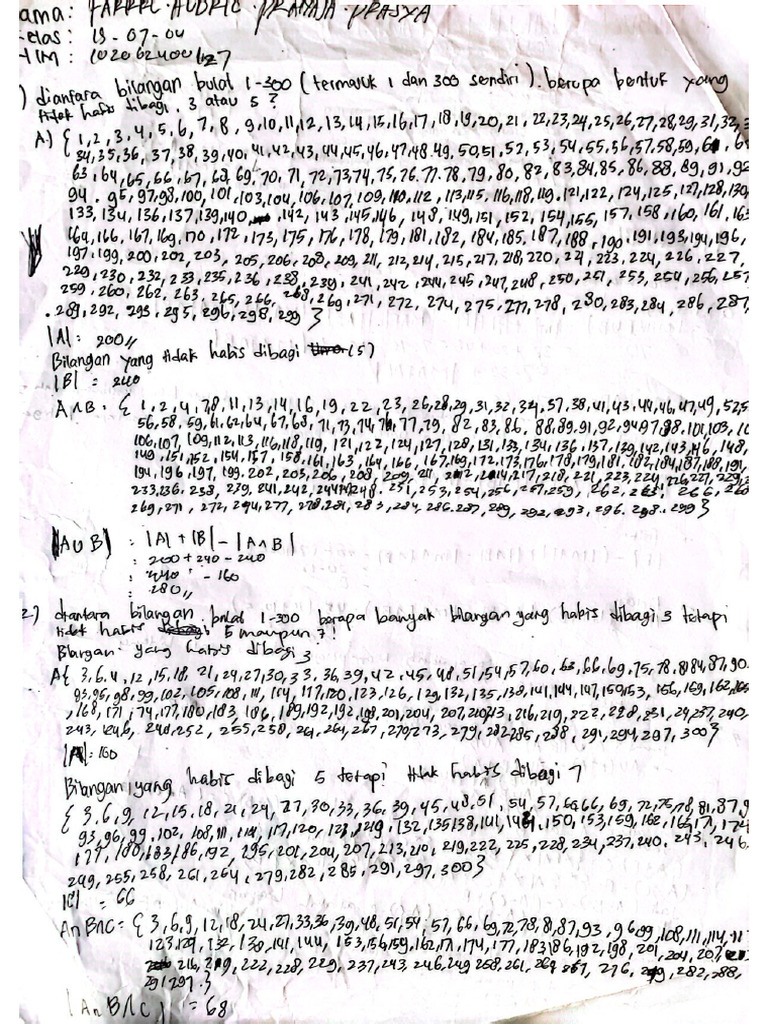 ama: FARREL AUDRIC PRAMAJA PRASYA
elas: IS-07-04
NIM: 102062400127
) diantara bilangan bulat 1-300 (termasuk 1 dan 300 sendiri). berapa bentuk yang
tidak habis dibagi 3 atau 5?
A) { 1, 2, 3, 4, 5, 6, 7, 8, 9, 10, 11, 12, 13, 14, 15, 16, 17, 18, 19, 20, 21, 22, 23, 24, 25, 26, 27, 28, 29, 31, 32,
34, 35, 36, 37, 38, 39, 40, 41, 42, 43, 44, 45, 46, 47, 48, 49, 50, 51, 52, 53, 54, 55, 56, 57, 58, 59,
63, 64, 65, 66, 67, 68, 69, 70, 71, 72, 73, 74, 75, 76, 77, 78, 79, 80, 82, 83, 84, 85, 86, 88, 89, 91, 92
94, 95, 97, 98, 100, 101, 103, 104, 106, 107, 109, 110, 112, 113, 115, 116, 118, 119, 121, 122, 124, 125, 127, 128, 130,
133, 134, 136, 137, 139, 140, 142, 143, 145, 146, 148, 149, 151, 152, 154, 155, 157, 158, 160, 161, 163
164, 166, 167, 169, 170, 172, 173, 175, 176, 178, 179, 181, 182, 184, 185, 187, 188, 190, 191, 193, 194, 196,
197, 199, 200, 202, 203, 205, 206, 208, 209, 211, 212, 214, 215, 217, 218, 220, 221, 223, 224, 226, 227,
229, 230, 232, 233, 235, 236, 238, 239, 241, 242, 244, 245, 247, 248, 250, 251, 253, 254, 256, 257
259, 260, 262, 263, 265, 266, 268, 269, 271, 272, 274, 275, 277, 278, 280, 283, 284, 286, 287,
289, 292, 293, 295, 296, 298, 299 }
|A|: 200,,
Bilangan yang tidak habis dibagi (5)
|B| = 240
A∩B = { 1, 2, 4, 7, 8, 11, 13, 14, 16, 19, 22, 23, 26, 28, 29, 31, 32, 34, 37, 38, 41, 43, 44, 46, 47, 49, 52, 53
56, 58, 59, 61, 62, 64, 67, 68, 71, 73, 74, 76, 77, 79, 82, 83, 86, 88, 89, 91, 92, 94, 97, 98, 101, 103,
106, 107, 109, 112, 113, 116, 118, 119, 121, 122, 124, 127, 128, 131, 133, 134, 136, 137, 139, 142, 143, 146, 148,
149, 151, 152, 154, 157, 158, 161, 163, 164, 166, 167, 169, 172, 173, 176, 178, 179, 181, 182, 184, 187, 188, 191
194, 196, 197, 199, 202, 203, 206, 208, 209, 211, 212, 214, 217, 218, 221, 223, 224, 226, 227, 229,
233, 236, 238, 239, 241, 242, 244, 248, 251, 253, 254, 256, 257, 259, 262, 263, 266, 268
269, 271, 272, 274, 277, 278, 281, 283, 284, 286, 287, 289, 292, 293, 296, 298, 299 }
|A∪B| : |A| + |B| - |A∩B|
: 200 + 240 - 240
: 440 - 160
: 280,,
2.) diantara bilangan bulat 1-300 berapa banyak bilangan yang habis dibagi 3 tetapi
tidak habis 5 maupun 7!
Bilangan yang habis dibagi 3
A{ 3, 6, 4, 12, 15, 18, 21, 24, 27, 30, 33, 36, 39, 42, 45, 48, 51, 54, 57, 60, 63, 66, 69, 75, 78, 81, 84, 87, 90
93, 95, 98, 99, 102, 105, 108, 111, 114, 117, 120, 123, 126, 129, 132, 135, 138, 141, 144, 147, 159, 153, 156, 159, 162, 165
168, 171, 174, 177, 180, 183, 186, 189, 192, 192, 198, 201, 204, 207, 210, 213, 216, 219, 222, 228, 231, 24, 237, 240,
243, 246, 248, 252, 255, 258, 261, 264, 267, 270, 273, 279, 282, 285, 288, 291, 294, 297, 300}
|A| = 100
Bilangan yang habis dibagi 5 tetapi tidak habis dibagi 7
{ 3, 6, 9, 12, 15, 18, 21, 24, 27, 30, 33, 36, 39, 45, 48, 51, 54, 57, 60, 66, 69, 72, 75, 78, 81, 87, 9
93, 96, 99, 102, 108, 111, 114, 117, 120, 123, 129, 132, 135, 138, 141, 144, 150, 153, 159, 162, 165, 171, 174
177, 180, 183, 186, 192, 195, 201, 204, 207, 213, 210, 219, 222, 225, 228, 234, 237, 240, 243, 246,
249, 255, 258, 261, 264, 279, 282, 285, 291, 297, 300}
|C| = 66
A∩B∩C = { 3, 6, 9, 12, 18, 24, 27, 33, 36, 39, 48, 51, 54, 57, 66, 69, 72, 78, 81, 87, 93, 96, 99, 108, 111, 114, 11
123, 129, 132, 139, 141, 144, 153, 156, 159, 162, 171, 174, 177, 183, 186, 192, 198, 201, 204, 207,
216, 219, 222, 228, 229, 237, 243, 246, 249, 258, 261, 264, 267, 276, 279, 282, 288,
291, 297.}
|A∩B∩C| = 68